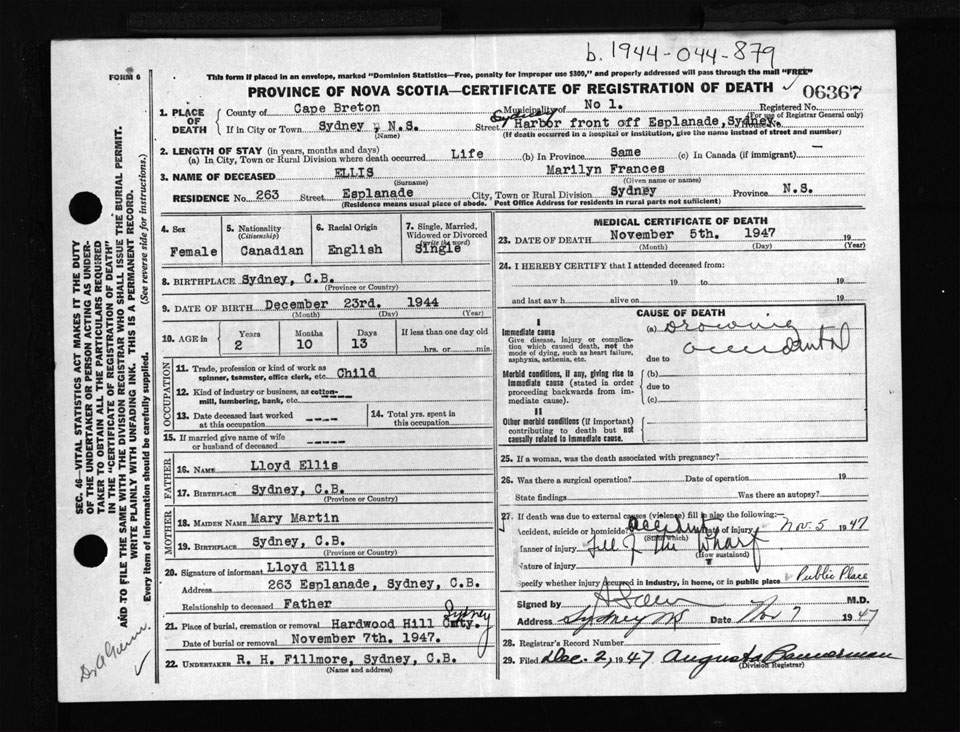 b. 1944-044-879
FORM 6
This form if placed in an envelope, marked "Dominion Statistics—Free, penalty for improper use $300," and properly addressed will pass through the mail "FREE"
PROVINCE OF NOVA SCOTIA—CERTIFICATE OF REGISTRATION OF DEATH
06367
1. PLACE OF DEATH
County of Cape Breton Municipality of No 1. Registered No.
(For use of Registrar General only)
If in City or Town Sydney, N.S. Street Sydney Harbor front off Esplanade, Sydney. House No.
(Name) (If death occurred in a hospital or institution, give the name instead of street and number)
2. LENGTH OF STAY (in years, months and days)
(a) In City, Town or Rural Division where death occurred Life (b) In Province Same (c) In Canada (if immigrant) —
3. NAME OF DECEASED ELLIS Marilyn Frances
(Surname) (Given name or names)
RESIDENCE No 263 Street Esplanade City, Town or Rural Division Sydney Province N.S.
(Residence means usual place of abode. Post Office Address for residents in rural parts not sufficient)
4. Sex
Female
5. Nationality
(Citizenship)
Canadian
6. Racial Origin
English
7. Single, Married, Widowed or Divorced
(write the word)
Single
8. BIRTHPLACE Sydney, C.B.
(Province or Country)
9. DATE OF BIRTH December 23rd. 1944
(Month) (Day) (Year)
10. AGE in
Years Months Days If less than one day old
2 10 13 hrs. or min.
OCCUPATION
11. Trade, profession or kind of work as spinner, teamster, office clerk, etc. Child
12. Kind of industry or business, as cotton-mill, lumbering, bank, etc. ----
13. Date deceased last worked at this occupation ----
14. Total yrs. spent in this occupation
15. If married give name of wife or husband of deceased -----
FATHER
16. NAME Lloyd Ellis
17. BIRTHPLACE Sydney, C.B.
(Province or Country)
MOTHER
18. MAIDEN NAME Mary Martin
19. BIRTHPLACE Sydney, C.B.
(Province or Country)
20. Signature of informant Lloyd Ellis
Address 263 Esplanade, Sydney, C.B.
Relationship to deceased Father
21. Place of burial, cremation or removal Hardwood Hill Cmty. Sydney
Date of burial or removal November 7th. 1947.
22. UNDERTAKER R. H. Fillmore, Sydney, C.B.
(Name and address)
MEDICAL CERTIFICATE OF DEATH
23. DATE OF DEATH November 5th. 1947 19
(Month) (Day) (Year)
24. I HEREBY CERTIFY that I attended deceased from:
19 to 19
and last saw h alive on 19
CAUSE OF DEATH
I
Immediate cause
Give disease, injury or complication which caused death, not the mode of dying, such as heart failure, asphyxia, asthenia, etc.
(a) Drowning
accidental
due to
Morbid conditions, if any, giving rise to immediate cause (stated in order proceeding backwards from immediate cause).
(b)
due to
(c)
II
Other morbid conditions (if important) contributing to death but not causally related to immediate cause.
25. If a woman, was the death associated with pregnancy?
26. Was there a surgical operation? Date of operation 19
State findings Was there an autopsy?
27. If death was due to external causes (violence) fill in also the following:—
Accident, suicide or homicide? Accident Date of injury Nov. 5 1947
(State which)
Manner of injury fell off the Wharf
(How sustained)
Nature of injury
Specify whether injury occurred in industry, in home, or in public place Public Place
Signed by M.D.
Address Sydney NS Date Nov 7 1947
28. Registrar's Record Number
29. Filed Dec. 2, 1947 Augusta Bannerman
(Division Registrar)
SEC. 46—VITAL STATISTICS ACT MAKES IT THE DUTY
OF THE UNDERTAKER OR PERSON ACTING AS UNDER-
TAKER TO OBTAIN ALL THE PARTICULARS REQUIRED
IN THE "CERTIFICATE OF REGISTRATION OF DEATH"
AND TO FILE THE SAME WITH THE DIVISION REGISTRAR WHO SHALL ISSUE THE BURIAL PERMIT.
WRITE PLAINLY WITH UNFADING INK. THIS IS A PERMANENT RECORD.
Every item of information should be carefully supplied. (See reverse side for instructions.)